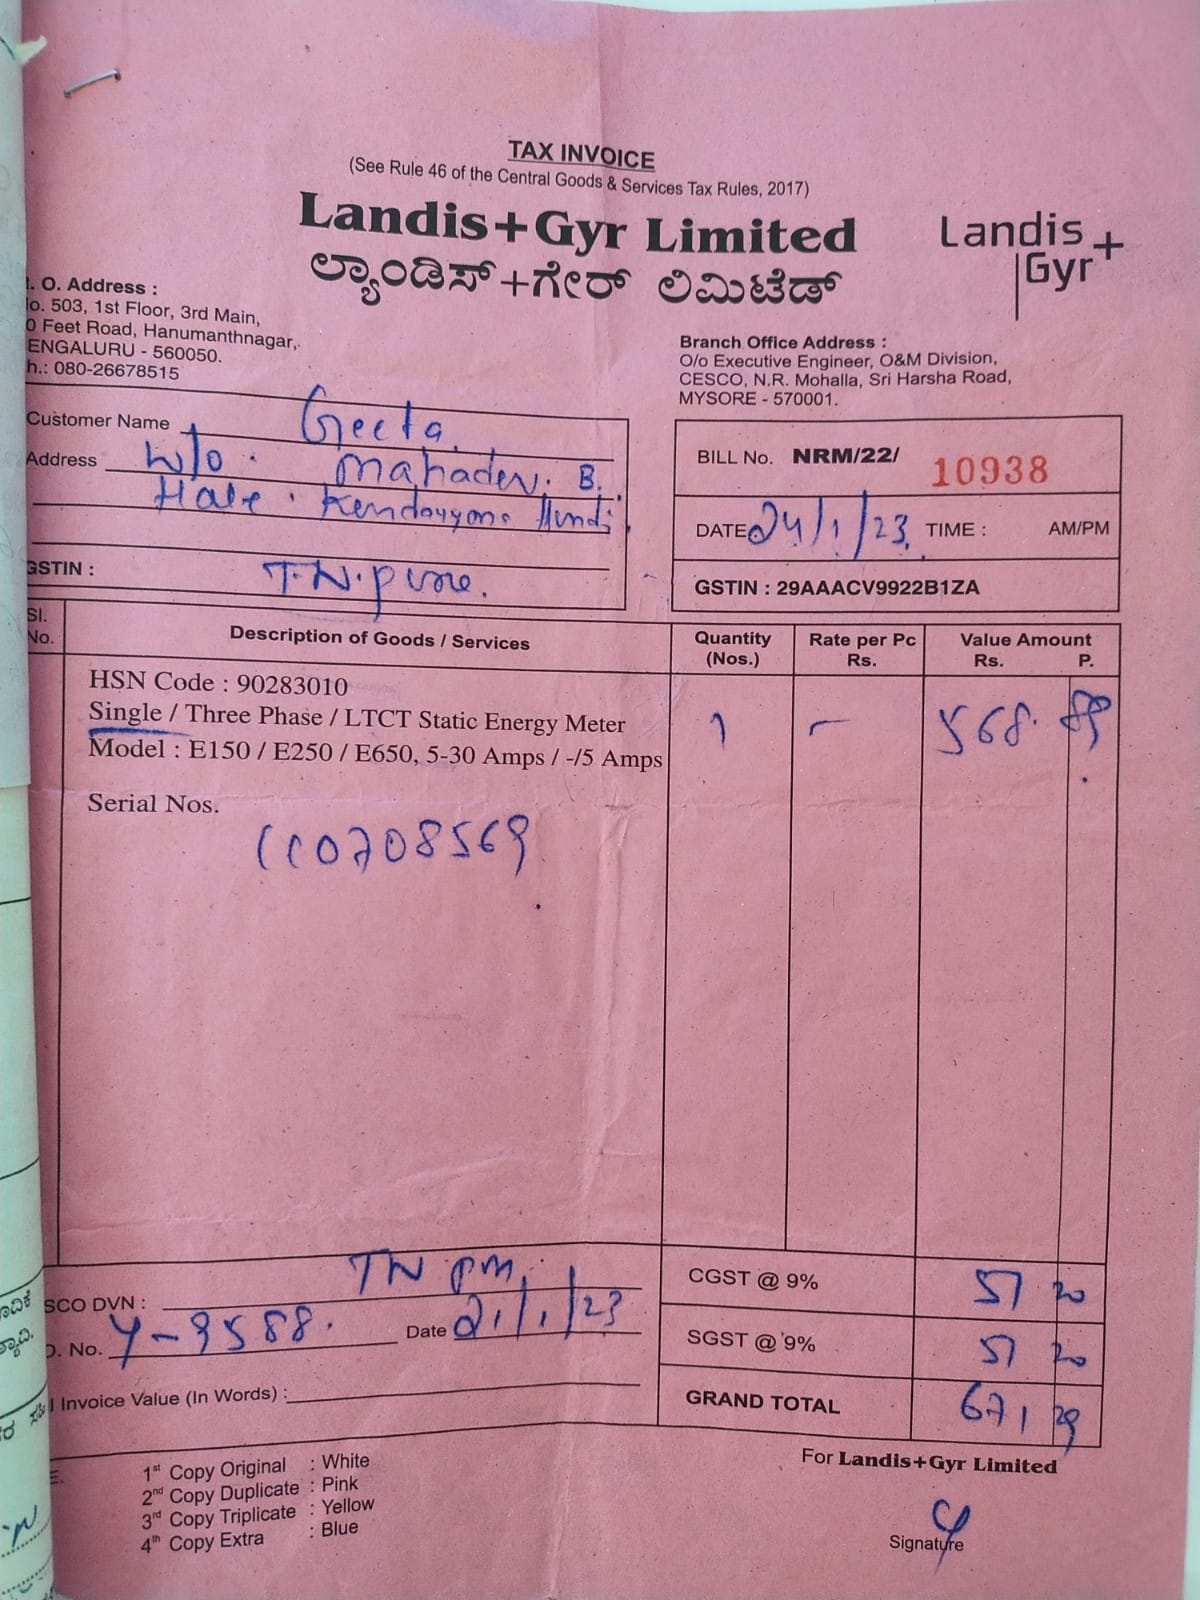 TAX INVOICE
(See Rule 46 of the Central Goods & Services Tax Rules, 2017)
Landis+Gyr Limited
ಲ್ಯಾಂಡಿಸ್+ಗೇರ್ ಲಿಮಿಟೆಡ್
Landis
Gyr+
. O. Address :
o. 503, 1st Floor, 3rd Main,
0 Feet Road, Hanumanthnagar,
ENGALURU - 560050.
h.: 080-26678515
Branch Office Address :
O/o Executive Engineer, O&M Division,
CESCO, N.R. Mohalla, Sri Harsha Road,
MYSORE - 570001.
Customer Name Geeta.
Address W/o. Mahadev. B.
Hale. Kendayyana Hundi
GSTIN : T.N.pura.
BILL No. NRM/22/ 10938
DATE 24/1/23. TIME : AM/PM
GSTIN : 29AAACV9922B1ZA
Sl. No. Description of Goods / Services Quantity (Nos.) Rate per Pc Rs. Value Amount Rs. P.
HSN Code : 90283010
Single / Three Phase / LTCT Static Energy Meter 1 - 568. 89
Model : E150 / E250 / E650, 5-30 Amps / -/5 Amps
Serial Nos.
CC0708569
SCO DVN : TN pm
. No. Y-3588. Date 21/1/23
Invoice Value (In Words) :
CGST @ 9% 51 20
SGST @ 9% 51 20
GRAND TOTAL 671 29
1st Copy Original : White
2nd Copy Duplicate : Pink
3rd Copy Triplicate : Yellow
4th Copy Extra : Blue
For Landis+Gyr Limited
Signature